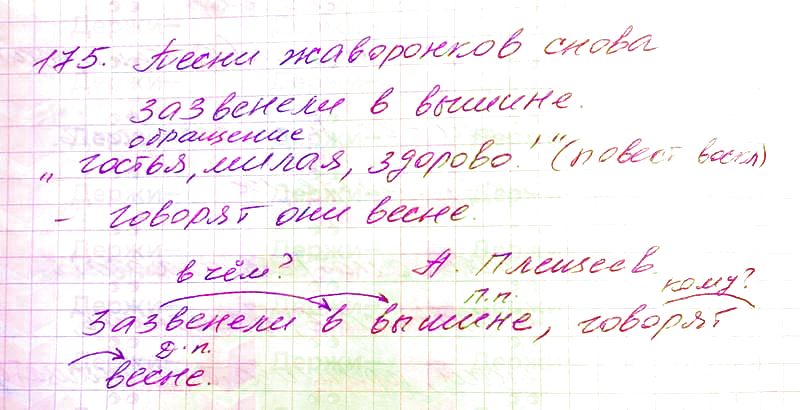 175. Песни жаворонков снова
зазвенели в вышине.
обращение
„ гостья, милая, здорово!" (повест воскл)
- говорят они весне.
А. Плещеев
в чём? кому?
П.п.
зазвенели в вышине, говорят
Д.п.
весне.